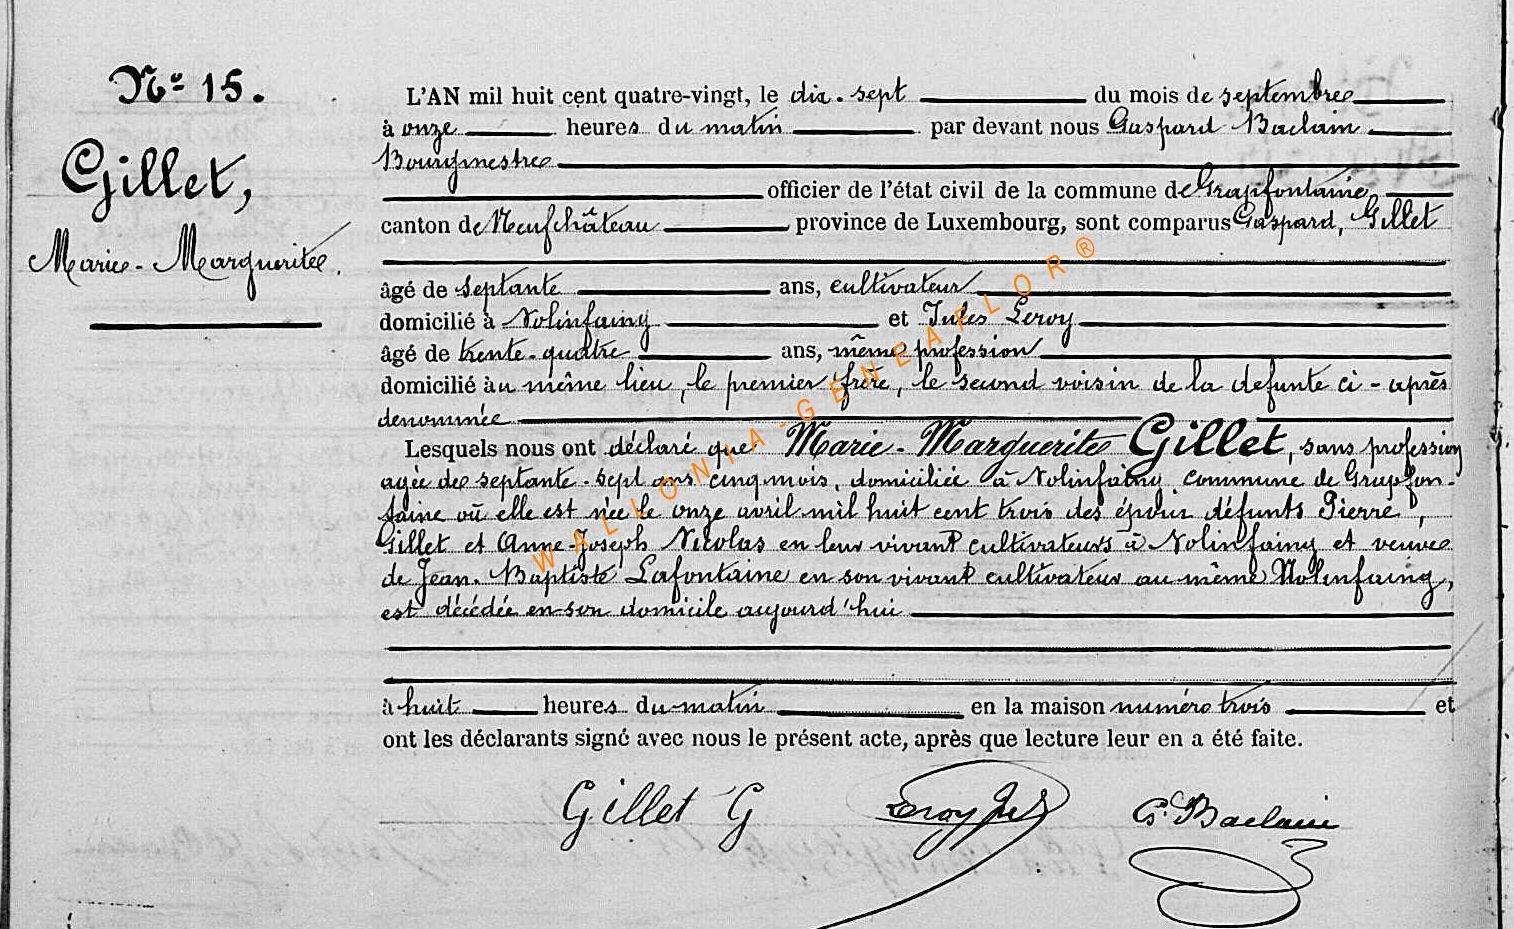 Nº 15.
Gillet,
Marie-Marguerite.
L'AN mil huit cent quatre-vingt, le dix-sept du mois de septembre
à onze heures du matin par devant nous Gaspard Baclain
Bourgmestre
officier de l'état civil de la commune de Grapfontaine
canton de Neufchâteau province de Luxembourg, sont comparus Gaspard, Gillet
âgé de septante ans, cultivateur
domicilié à Nolinfaing et Jules Leroy
âgé de trente-quatre ans, même profession
domicilié au même lieu, le premier frère, le second voisin de la defunte ci-après
denommée
Lesquels nous ont déclaré que Marie-Marguerite Gillet, sans profession
agée de septante-sept ans cinq mois, domiciliée à Nolinfaing commune de Grapfon-
taine où elle est née le onze avril mil huit cent trois des époux défunts Pierre,
Gillet et Anne-Joseph Nicolas en leur vivant cultivateurs à Nolinfaing et veuve
de Jean-Baptiste Lafontaine en son vivant cultivateur au même Nolinfaing,
est décédée en son domicile aujourd'hui
à huit heures du matin en la maison numéro trois et
ont les déclarants signé avec nous le présent acte, après que lecture leur en a été faite.
Gillet G Leroy Jules G. Baclain
WALLONIA-GENEAFLOR®